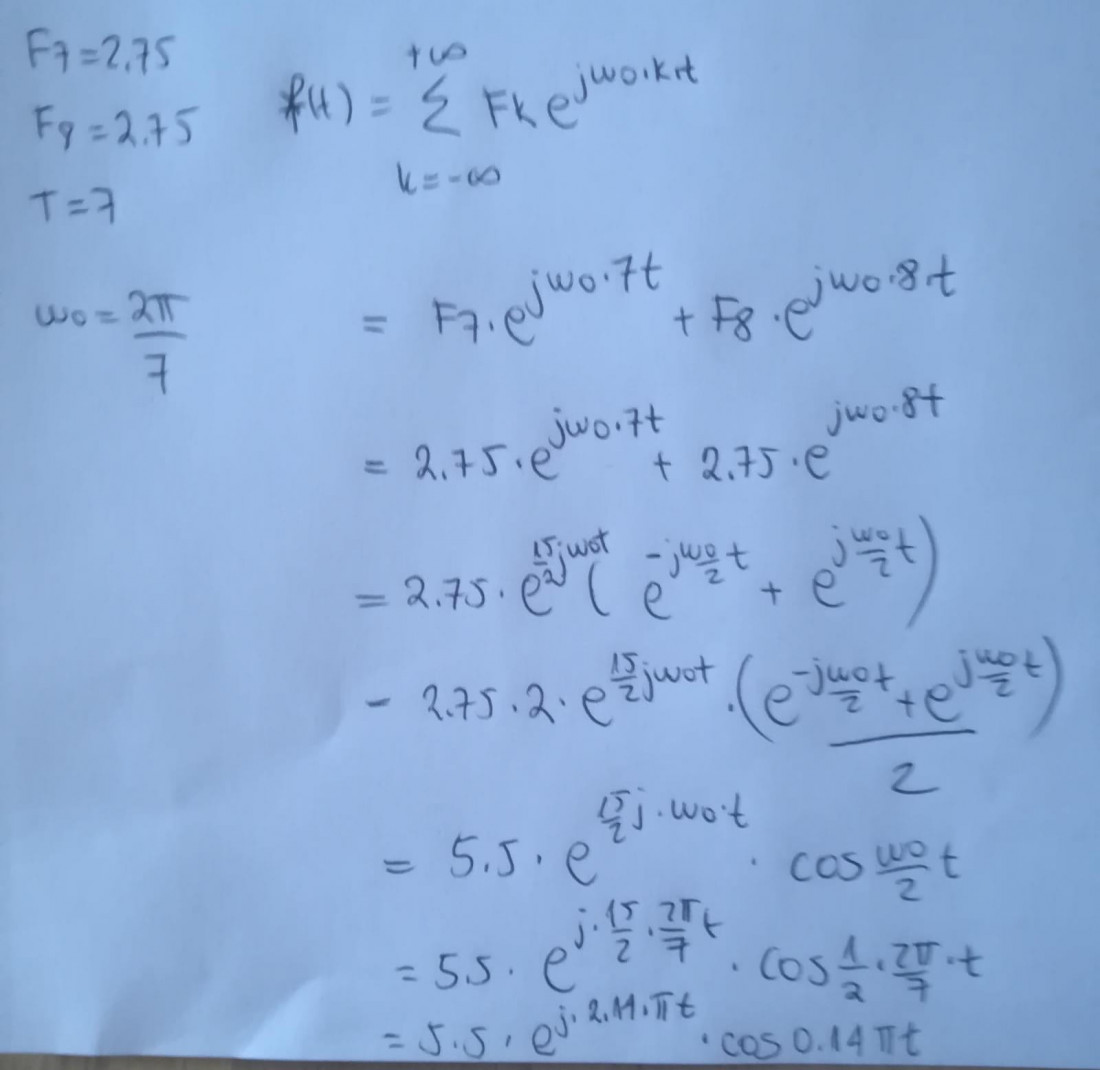 F7=2.75
F8=2.75
T=7
ω0=2π/7
f(t) = +∞ Σ k=-∞ Fk e^jω0.k.t
= F7.e^jω0.7t + F8.e^jω0.8.t
= 2.75.e^jω0.7t + 2.75.e^jω0.8t
= 2.75.e^15/2jω0t ( e^-jω0/2t + e^jω0/2t )
- 2.75.2.e^15/2jω0t .(e^-jω0/2t + e^jω0/2t)/2
= 5.5.e^15/2j.ω0.t . cos ω0/2 t
= 5.5. e^j.15/2.2π/7t . cos 1/2.2π/7.t
= 5.5.e^j.2.14.πt .cos 0.14πt